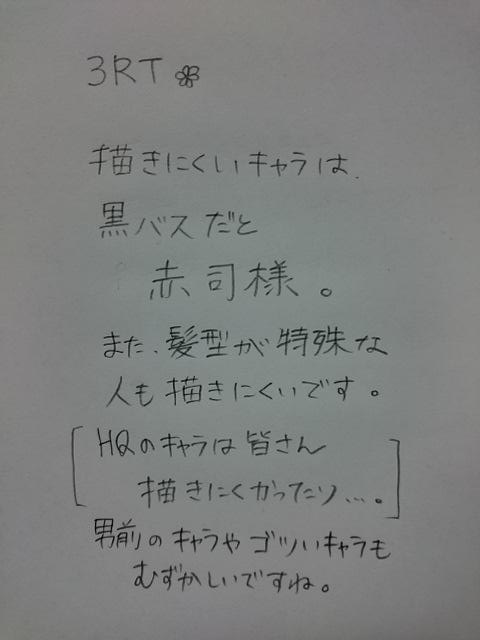 3RT
描きにくいキャラは、
黒バスだと
赤司様。
また、髪型が特殊な
人も描きにくいです。
[HQのキャラは皆さん
描きにくかったり…。]
男前のキャラやゴツいキャラも
むずかしいですね。